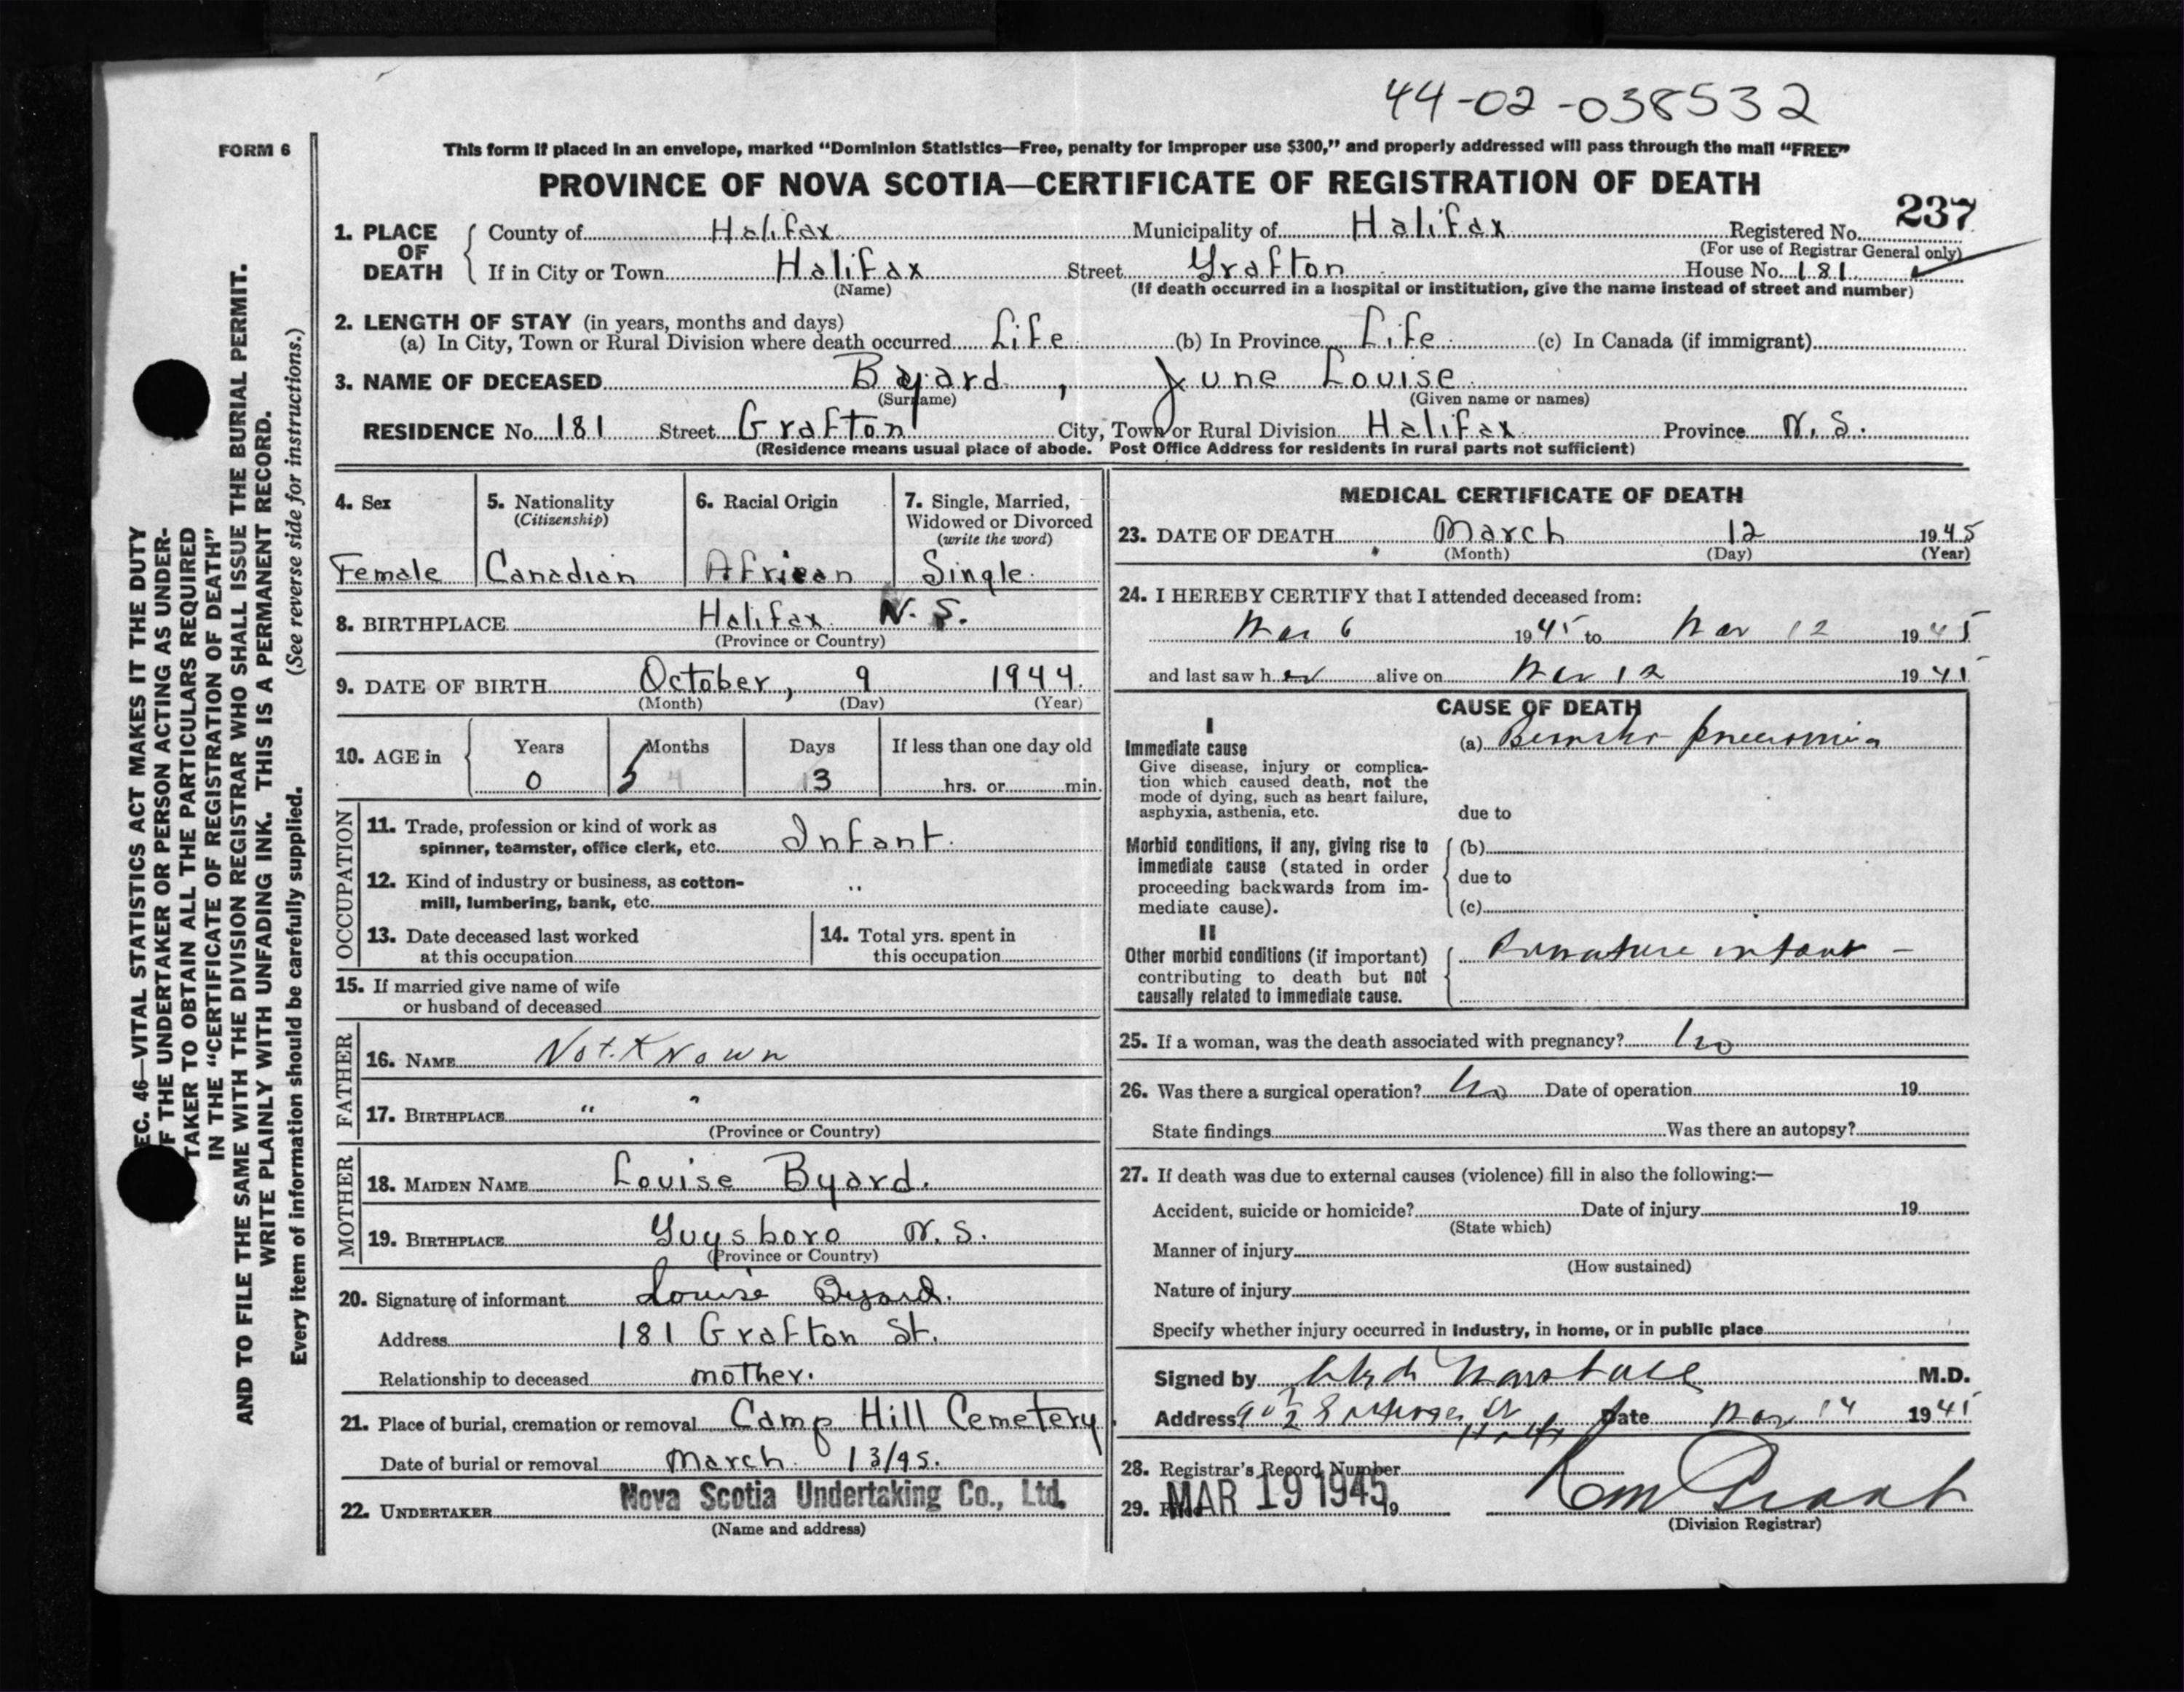 44-02-038532
FORM 6
This form if placed in an envelope, marked “Dominion Statistics—Free, penalty for improper use $300,” and properly addressed will pass through the mail “FREE”
PROVINCE OF NOVA SCOTIA—CERTIFICATE OF REGISTRATION OF DEATH
237
1. PLACE OF DEATH { County of Halifax Municipality of Halifax Registered No.
(For use of Registrar General only)
If in City or Town Halifax Street Grafton House No. 181
(Name) (If death occurred in a hospital or institution, give the name instead of street and number)
2. LENGTH OF STAY (in years, months and days)
(a) In City, Town or Rural Division where death occurred Life (b) In Province Life (c) In Canada (if immigrant)
3. NAME OF DECEASED Byard, June Louise
(Surname) (Given name or names)
RESIDENCE No. 181 Street Grafton City, Town or Rural Division Halifax Province N.S.
(Residence means usual place of abode. Post Office Address for residents in rural parts not sufficient)
4. Sex
Female
5. Nationality
(Citizenship)
Canadian
6. Racial Origin
African
7. Single, Married,
Widowed or Divorced
(write the word)
Single.
8. BIRTHPLACE Halifax N.S.
(Province or Country)
9. DATE OF BIRTH October, 9 1944.
(Month) (Day) (Year)
10. AGE in { Years Months Days If less than one day old
0 5 3 hrs. or min.
OCCUPATION
11. Trade, profession or kind of work as
spinner, teamster, office clerk, etc. Infant.
12. Kind of industry or business, as cotton-
mill, lumbering, bank, etc. "
13. Date deceased last worked
at this occupation
14. Total yrs. spent in
this occupation
15. If married give name of wife
or husband of deceased
FATHER
16. NAME Not Known
17. BIRTHPLACE " "
(Province or Country)
MOTHER
18. MAIDEN NAME Louise Byard.
19. BIRTHPLACE Guysboro N.S.
(Province or Country)
20. Signature of informant Louise Byard.
Address 181 Grafton St.
Relationship to deceased mother.
21. Place of burial, cremation or removal Camp Hill Cemetery
Date of burial or removal March 13/45.
22. UNDERTAKER Nova Scotia Undertaking Co., Ltd.
(Name and address)
MEDICAL CERTIFICATE OF DEATH
23. DATE OF DEATH March 12 1945
(Month) (Day) (Year)
24. I HEREBY CERTIFY that I attended deceased from:
Mar 6 1945 to Mar 12 1945
and last saw her alive on Mar 12 1945
CAUSE OF DEATH
I
Immediate cause
Give disease, injury or complica-
tion which caused death, not the
mode of dying, such as heart failure,
asphyxia, asthenia, etc.
(a) Broncho pneumonia
due to
Morbid conditions, if any, giving rise to
immediate cause (stated in order
proceeding backwards from im-
mediate cause).
(b)
due to
(c)
II
Other morbid conditions (if important)
contributing to death but not
causally related to immediate cause.
Premature infant —
25. If a woman, was the death associated with pregnancy? No
26. Was there a surgical operation? No Date of operation 19
State findings Was there an autopsy?
27. If death was due to external causes (violence) fill in also the following:—
Accident, suicide or homicide? Date of injury 19
(State which)
Manner of injury
(How sustained)
Nature of injury
Specify whether injury occurred in industry, in home, or in public place
Signed by M.D.
Address Date Mar 14 1945
28. Registrar's Record Number
29. MAR 19 1945 19
(Division Registrar)
EC. 46—VITAL STATISTICS ACT MAKES IT THE DUTY
F THE UNDERTAKER OR PERSON ACTING AS UNDER-
TAKER TO OBTAIN ALL THE PARTICULARS REQUIRED
IN THE “CERTIFICATE OF REGISTRATION OF DEATH”
AND TO FILE THE SAME WITH THE DIVISION REGISTRAR WHO SHALL ISSUE THE BURIAL PERMIT.
WRITE PLAINLY WITH UNFADING INK. THIS IS A PERMANENT RECORD.
Every item of information should be carefully supplied. (See reverse side for instructions.)